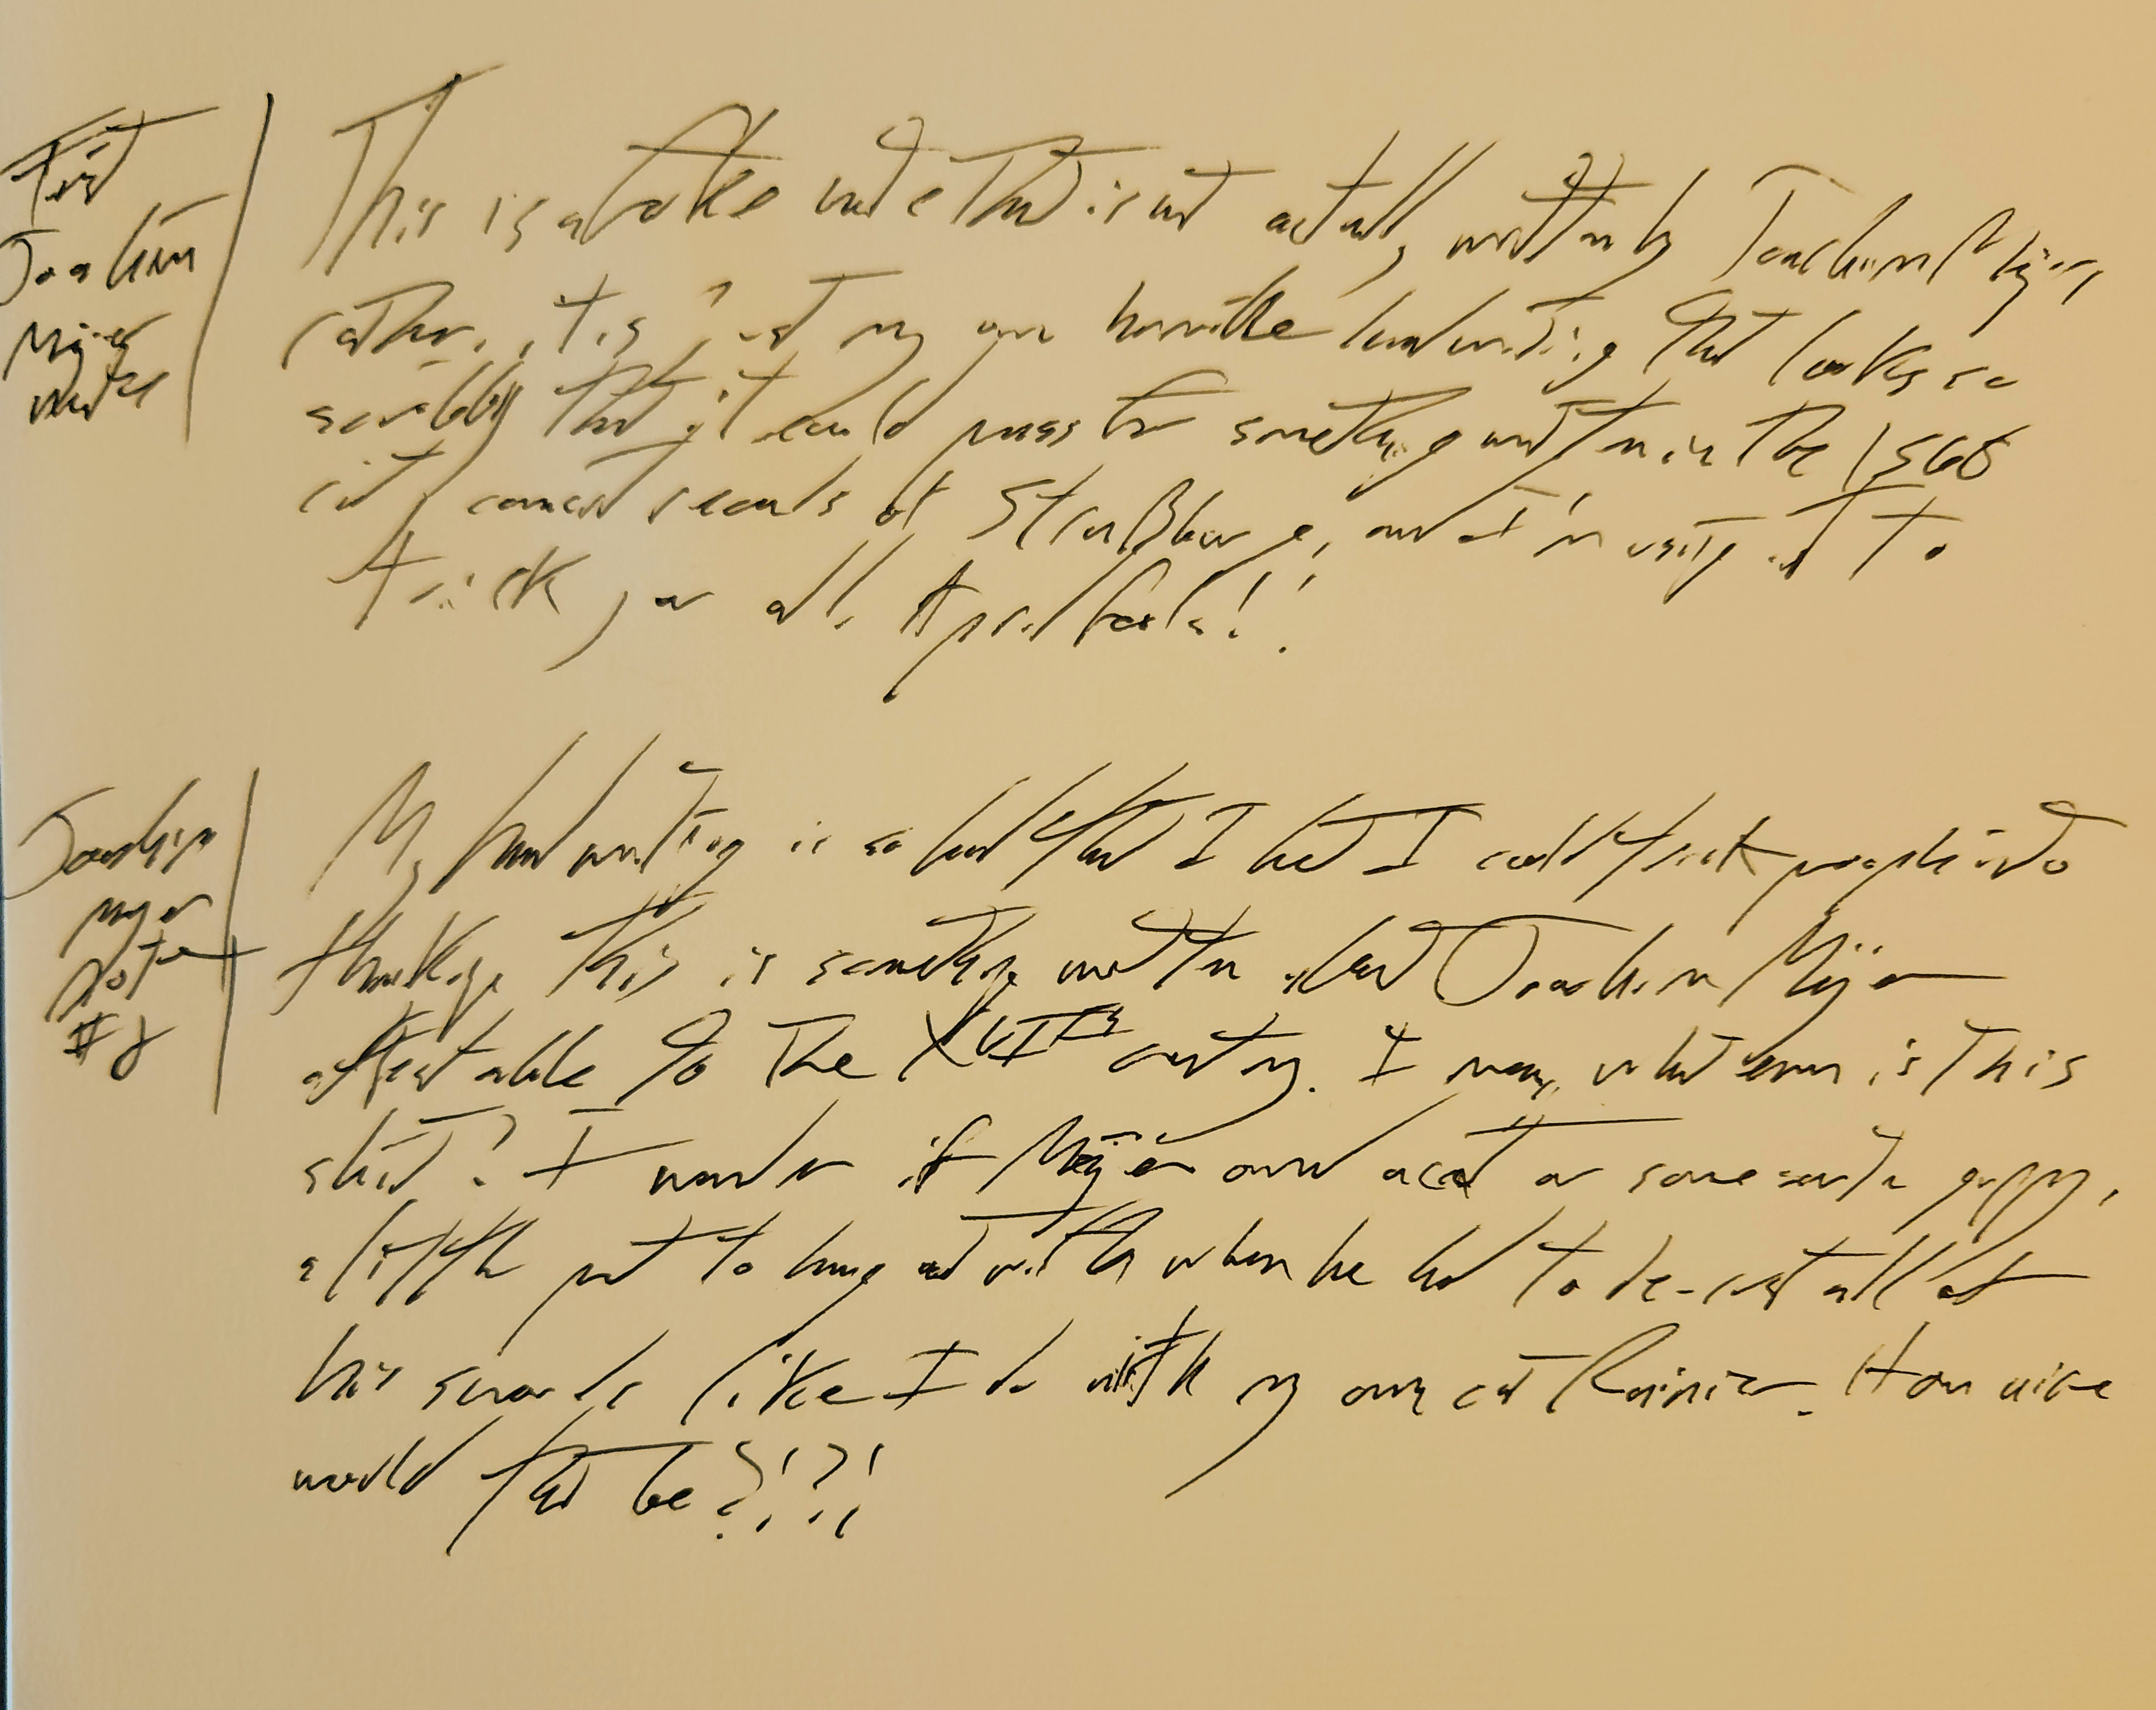 First
Joachim
Meÿer
note
This is a fake note that is not actually written by Joachim Meÿer,
rather, it is just my own horrible handwriting that looks so
scribbly that it could pass for something written in the 1560s
city council records of Straßburg, and I'm using it to
trick you all. April fools!!
Joachim
Meyer
note
#2
My handwriting is so bad that I bet I could trick people into
thinking this is something written about Joachim Meÿer
attestable to the XVIth century. I mean, what even is this
shit? I wonder if Meÿer owned a cat or some sort of puppy,
a little pet to hang out with when he had to de-rust all of
his swords like I do with my own cat Rainier. How nice
would that be?!?!